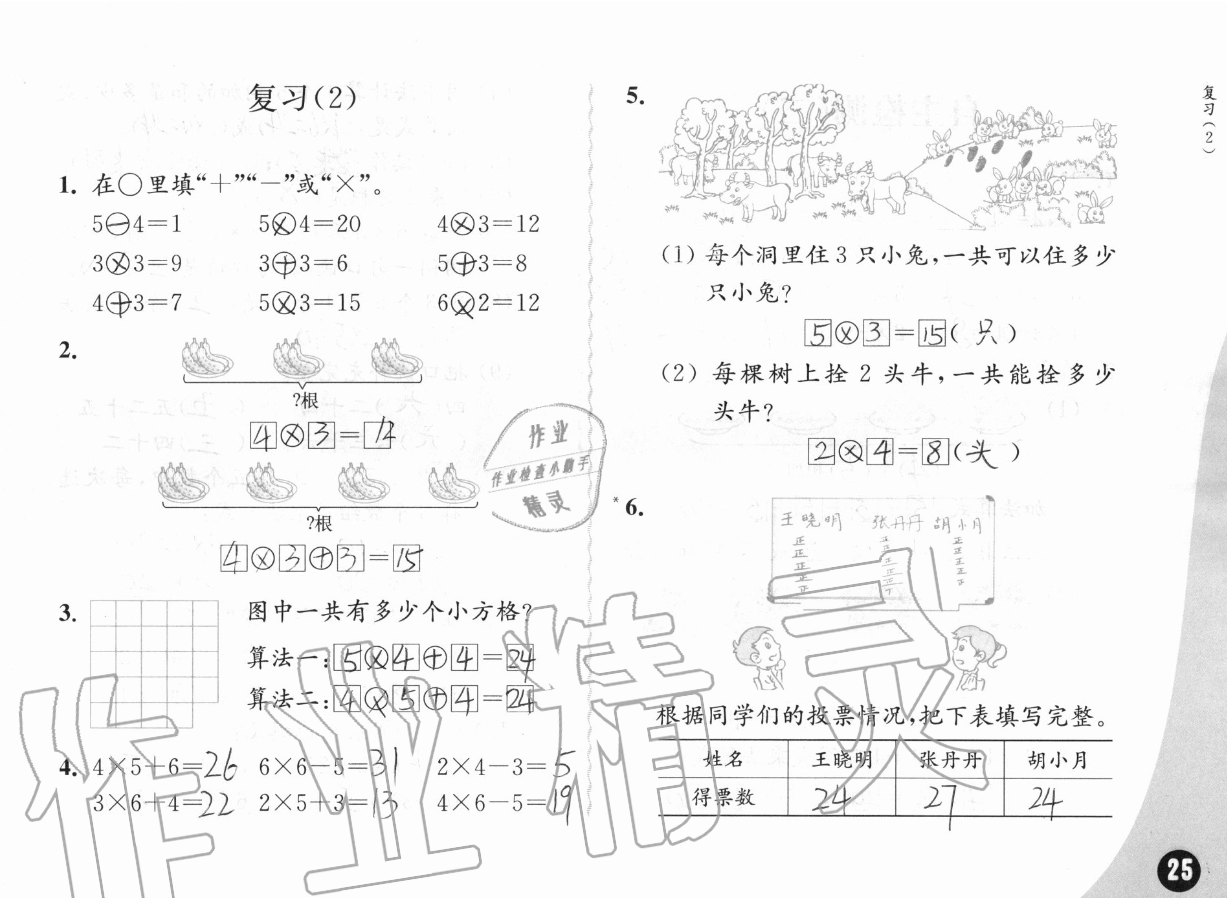 复习(2)
1. 在○里填“＋”“－”或“×”。
5－4=1 5×4=20 4×3=12
3×3=9 3＋3=6 5＋3=8
4＋3=7 5×3=15 6×2=12
2.
?根
4×3=12
?根
4×3＋3=15
3. 图中一共有多少个小方格?
算法一:5×4＋4=24
算法二:4×5＋4=24
4. 4×5+6=26 6×6-5=31 2×4-3=5
3×6+4=22 2×5+3=13 4×6-5=19
5.
(1) 每个洞里住3只小兔,一共可以住多少
只小兔?
5×3=15(只)
(2) 每棵树上拴2头牛,一共能拴多少
头牛?
2×4=8(头)
*6.
王晓明 张丹丹 胡小月
正 正 正
正 正
正 正 正
正 正 正
根据同学们的投票情况,把下表填写完整。
姓名 王晓明 张丹丹 胡小月
得票数 24 27 24
复习(2)
25
作业
作业检查小助手
精灵
作业精灵